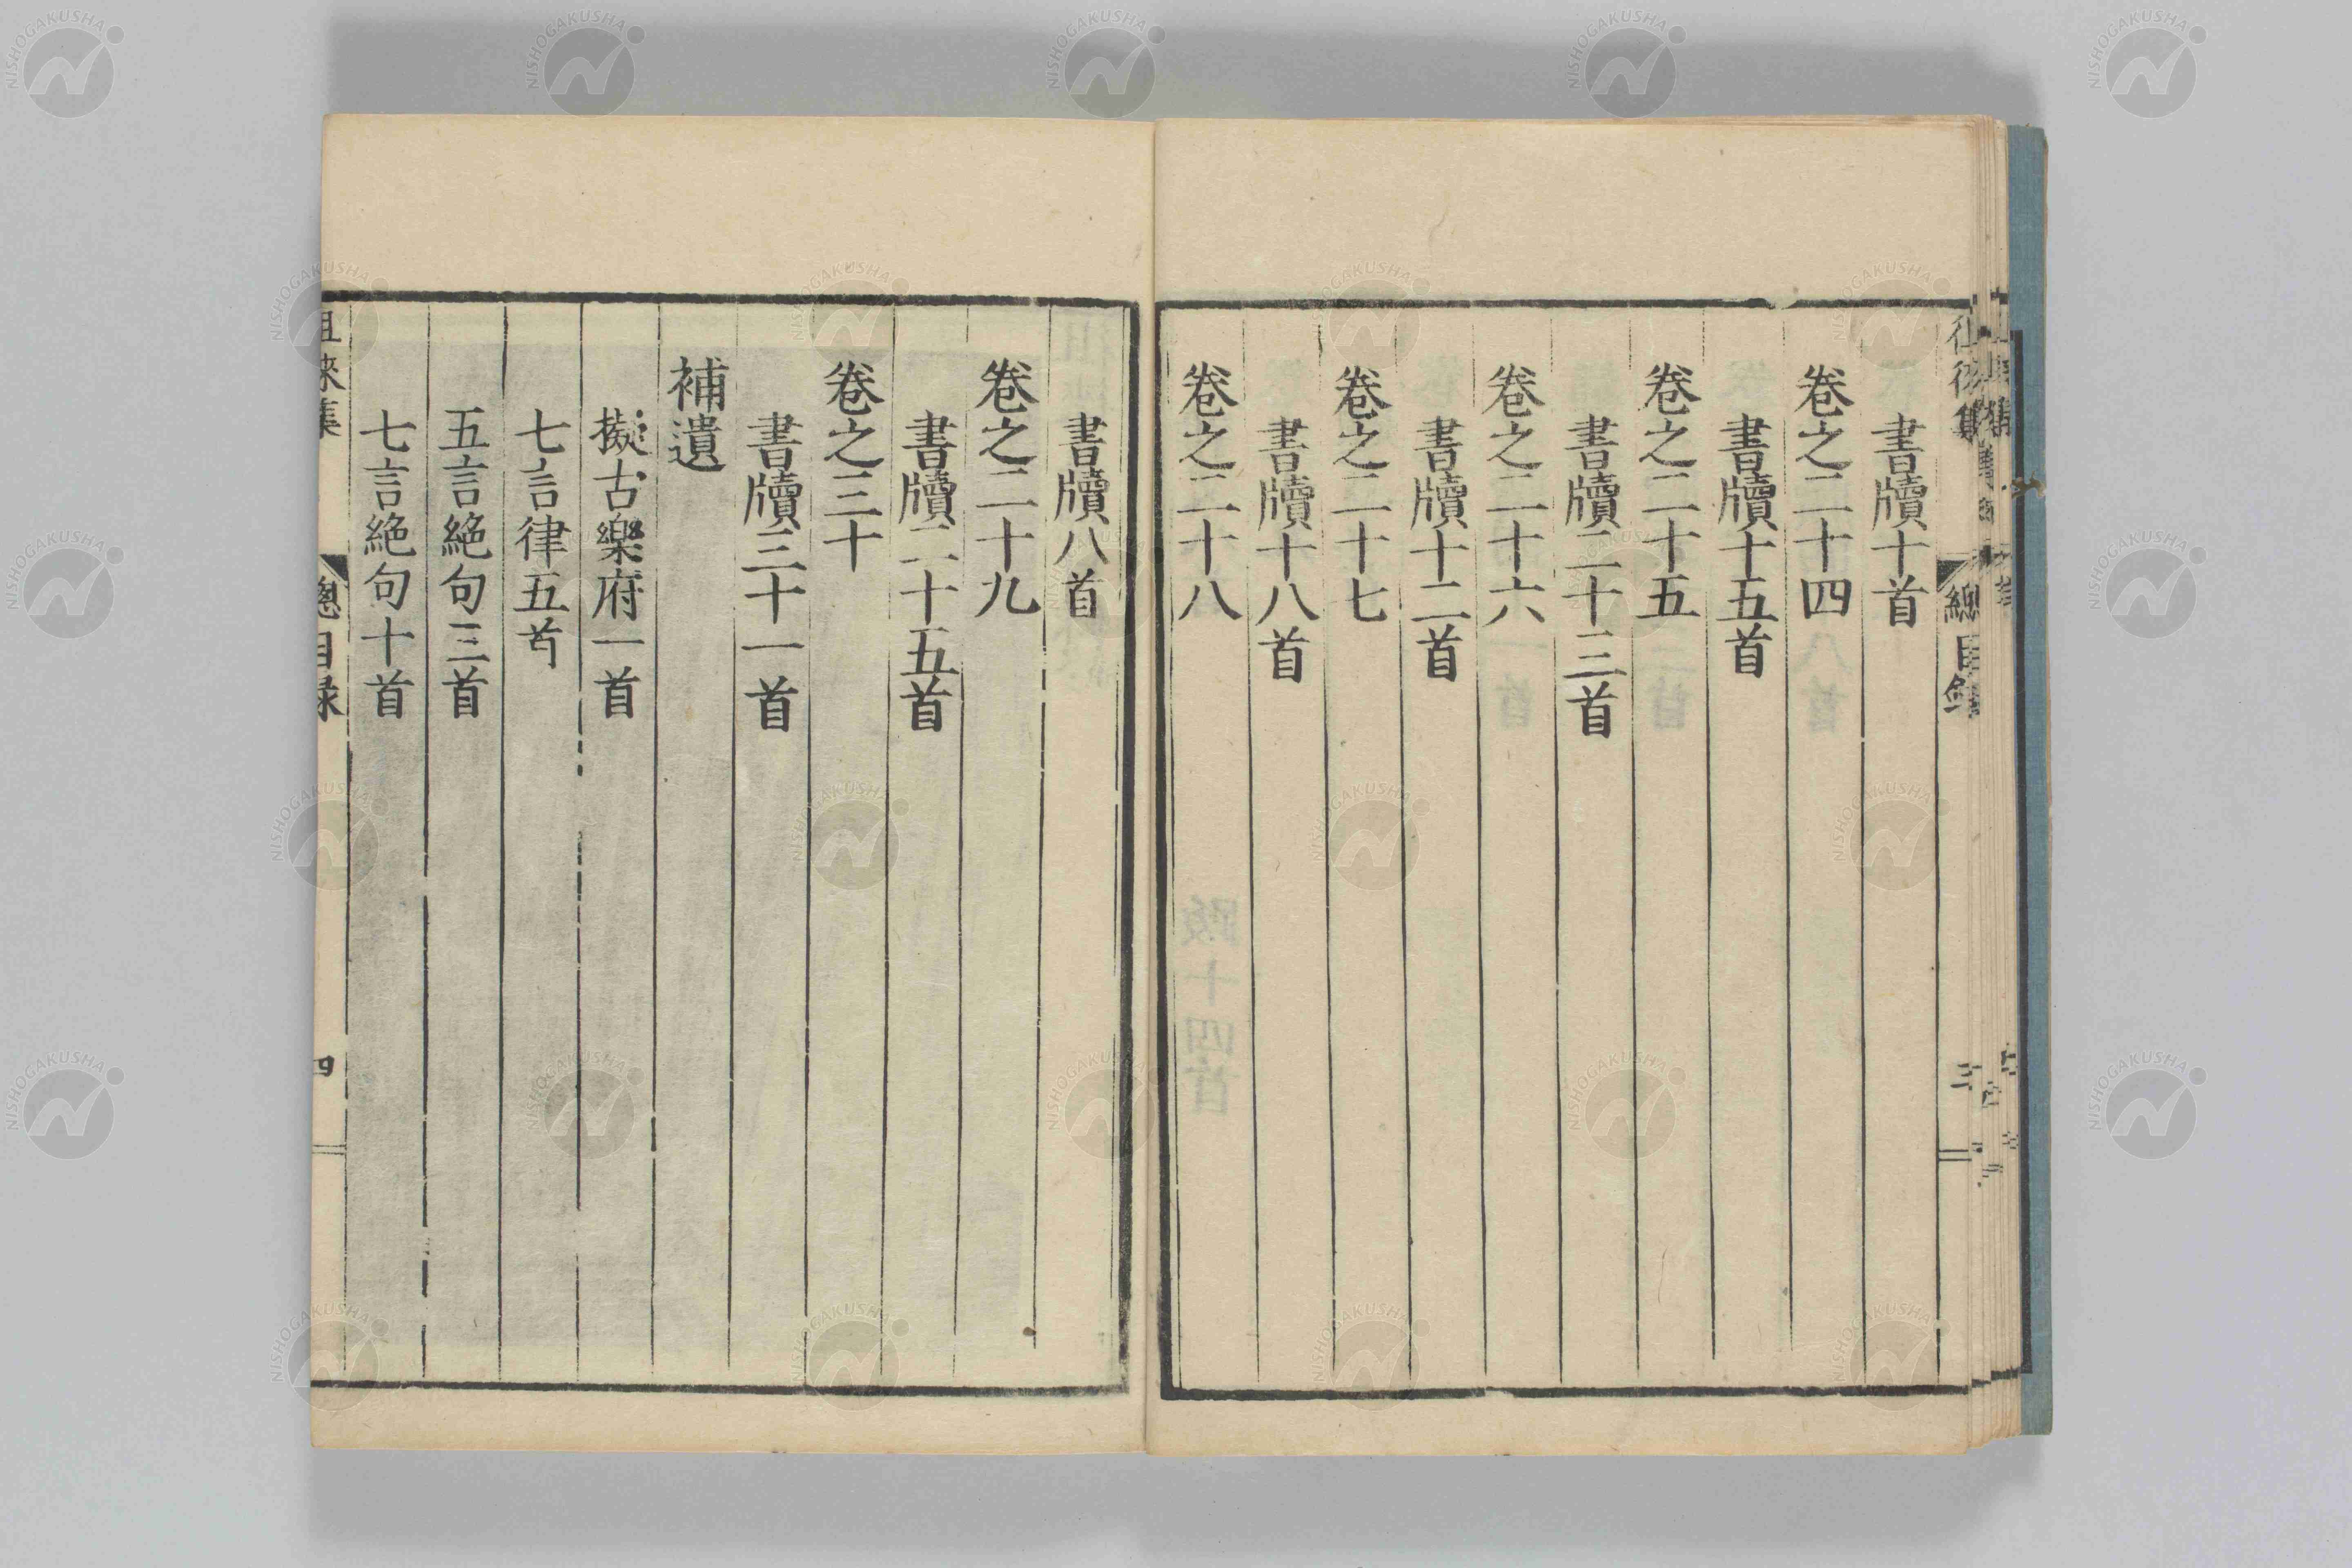 書牘十首
卷之二十四
書牘十五首
卷之二十五
書牘二十三首
卷之二十六
書牘十二首
卷之二十七
書牘十八首
卷之二十八
書牘八首
卷之二十九
書牘二十五首
卷之三十
書牘三十一首
補遺
擬古樂府一首
七言律五首
五言絶句三首
七言絶句十首
徂徠集
總目録
四
NISHOGAKUSHA